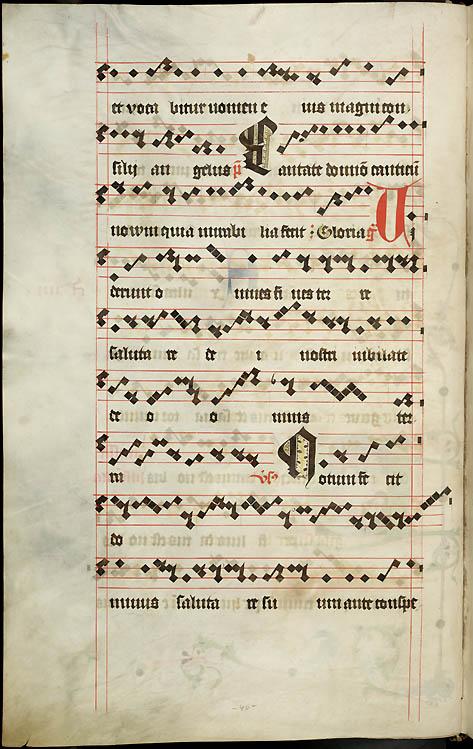 et voca bitur nomen e ius magni con
silij an gelus p̄ Cantate domino canticū
nowm quia mirabi lia fecit : Gloria g̃ Ui
derunt o mnes fi nes ter re
saluta re de i nostri iubilate
de o o mnis ter
ra vs̃ Notum fe cit
do
minus saluta re su um ante conspe